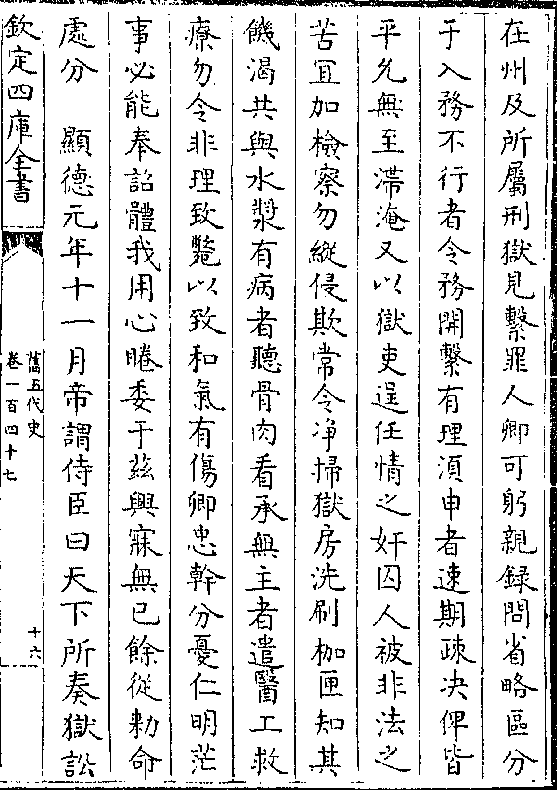 在州及所屬刑獄見繫罪人卿可躬親録問省略區分
于入務不行者令務開繫有理須申者速期疎决俾皆
平允無至滯淹又以獄吏逞任情之奸囚人被非法之
苦宜加檢察勿縱侵欺常令净掃獄房洗刷枷匣知其
饑渴共與水漿有病者聽骨肉看承無主者遣醫工救
療勿令非理致斃以致和氣有傷卿忠幹分憂仁明茫
事必能奉詔體我用心睠委于兹興寐無已餘從勅命
處分　顯德元年十一月帝謂侍臣曰天下所奏獄訟
欽定四庫全書
舊五代史
卷一百四十七
十六